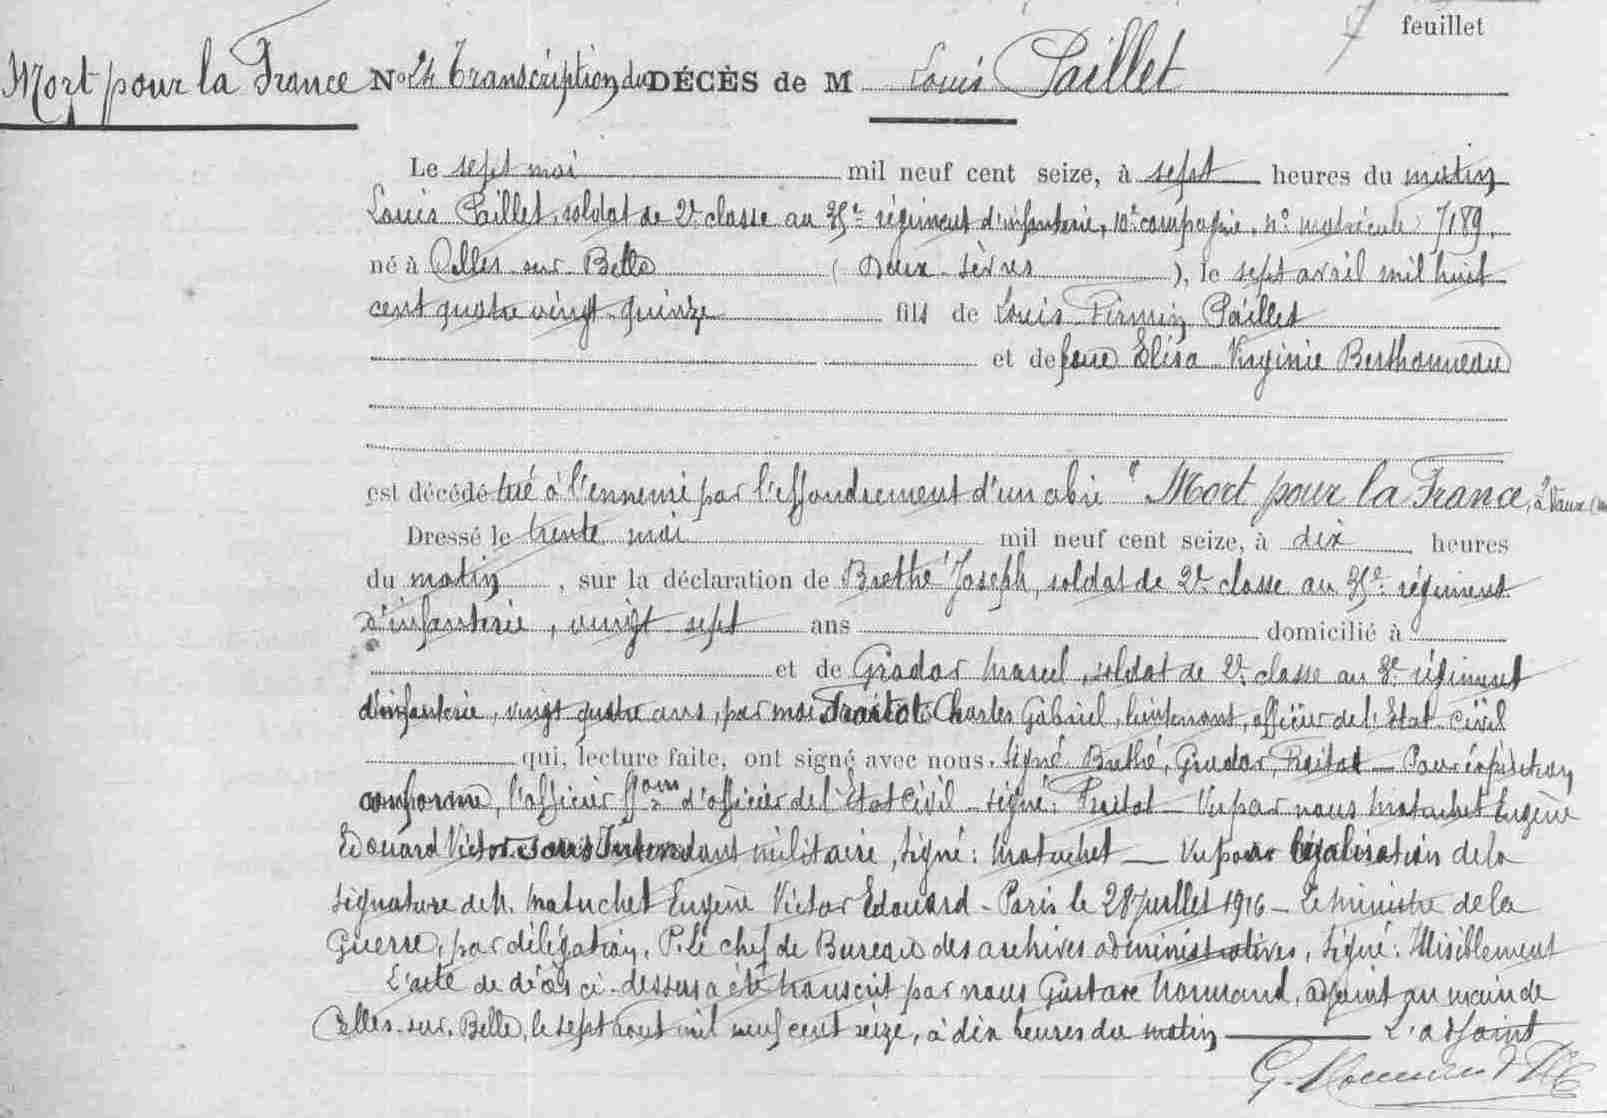 7 feuillet
Mort pour la France No 24 Transcription du DÉCÈS de M Louis Paillet
Le sept mai mil neuf cent seize, à sept heures du matin
Louis Paillet, soldat de 2e classe au 35e régiment d'infanterie, 10e compagnie, no matricule : 7189,
né à Celles-sur-Belle ( Deux-Sèvres ), le sept avril mil huit
cent quatre vingt-quinze fils de Louis Firmin Paillet
et de feue Elisa Virginie Berthonneau
est décédé tué à l'ennemi par l'effondrement d'un abri "Mort pour la France", à Vaux
Dressé le trente mai mil neuf cent seize, à dix heures
du matin, sur la déclaration de Brethé Joseph, soldat de 2e classe au 35e régiment
d'infanterie, vingt sept ans domicilié à
et de Gradar Marcel, soldat de 2e classe au 3e régiment
d'infanterie, vingt quatre ans, par moi Charles Gabriel, lieutenant, officier de l'Etat-civil
qui, lecture faite, ont signé avec nous. Signé Brethé, Gradar, Pour expédition
conforme, l'officier ffons d'officier de l'Etat Civil - signé : Vu par nous Matuchet Eugène
Edouard Victor sous Intendant militaire, signé : Matuchet — Vu pour légalisation de la
signature de M. Matuchet Eugène Victor Edouard - Paris le 28 juillet 1916 - Le ministre de la
Guerre, par délégation, P. Le chef de Bureau des archives administratives, signé : Illisiblement
L'acte de décès ci-dessus a été transcrit par nous Gustave Normand, adjoint au maire de
Celles-sur-Belle, le sept août mil neuf cent seize, à dix heures du matin — L'adjoint
G. Normand